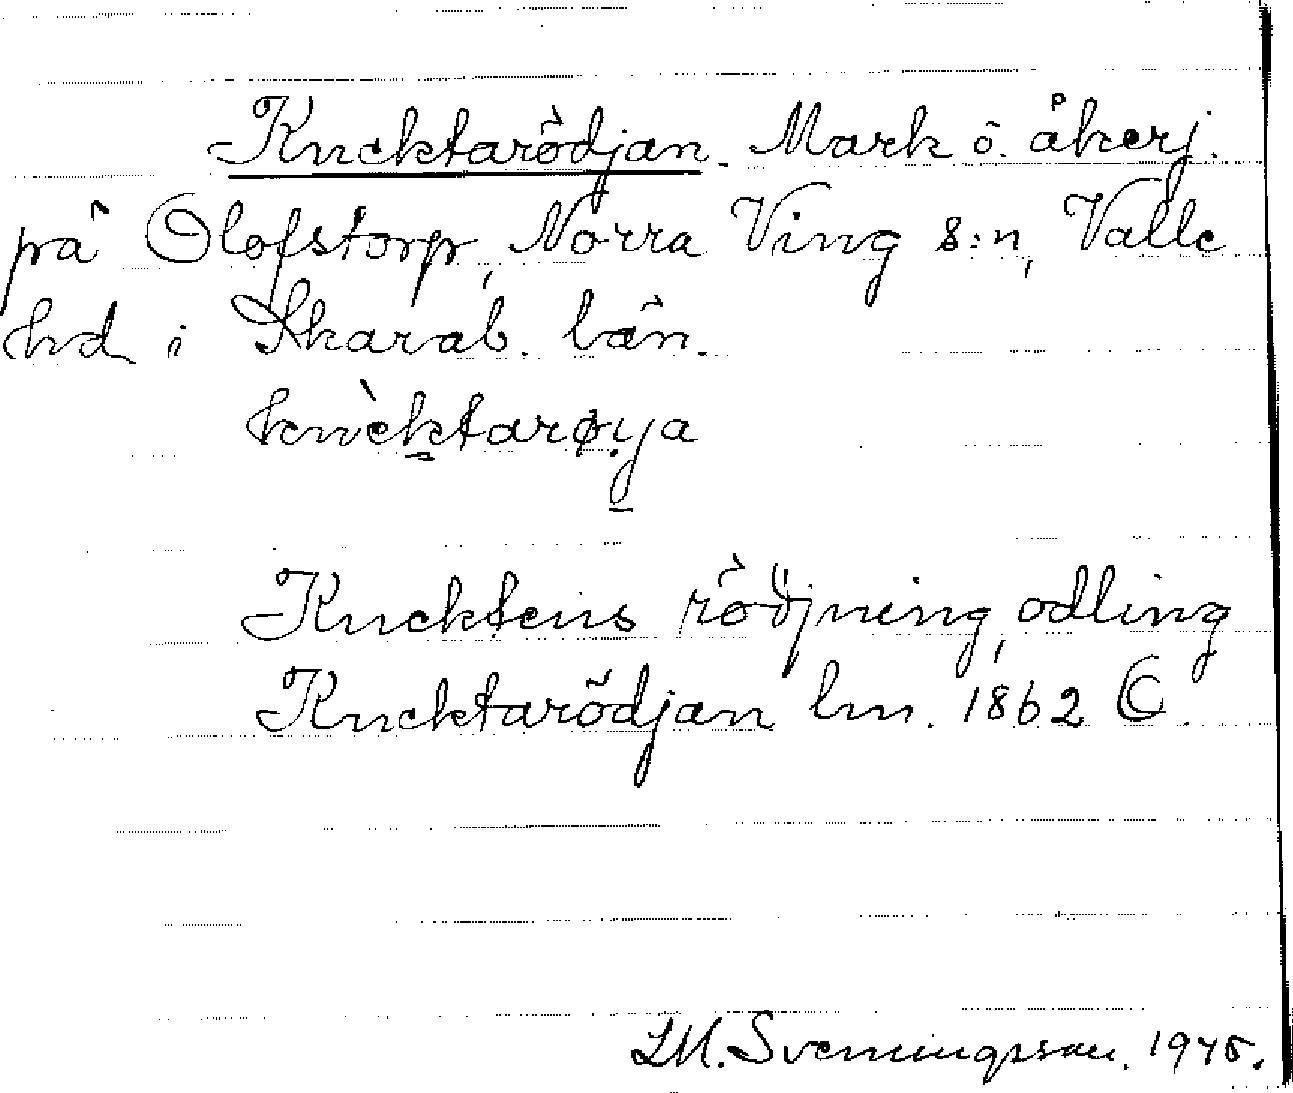 Knektarödjan. Mark o. åkerj.
på Olofstorp, Norra Ving s:n, Valle
hd i Skarab. län.
knècktarøya
Knektens rödjning, odling
Knektarödjan lm. 1862 ©.
LM. Svenningsson. 1945.